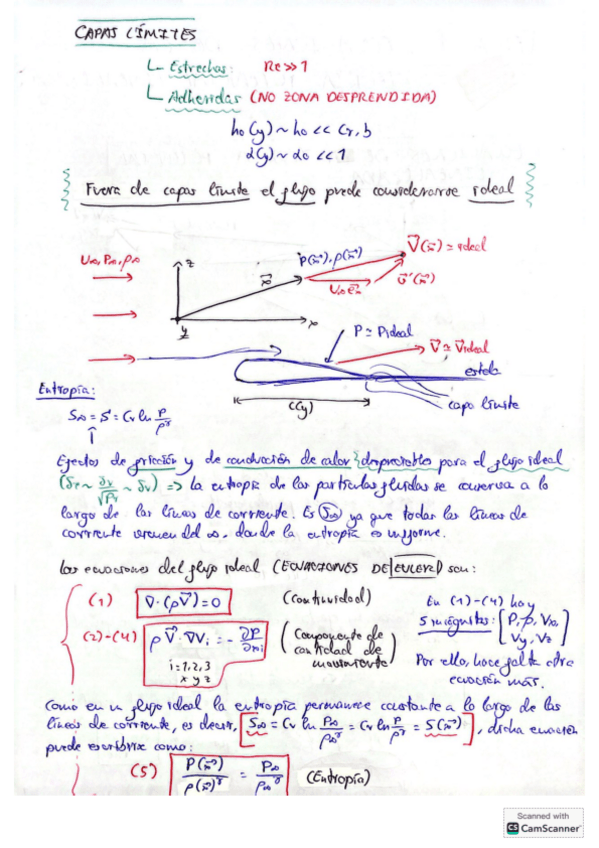 CAPAS LÍMITES
Estrechas: Re >> 1
Adheridas (NO ZONA DESPRENDIDA)
h₀(y) ~ h₀ << Cr, b
α(y) ~ α₀ << 1
Fuera de capas límite el flujo puede considerarse ideal
U∞, P∞, ρ∞
z
P(x⃗), ρ(x⃗)
V⃗(x⃗) ≃ ideal
x⃗
U∞ e⃗x
v⃗'(x⃗)
y
x
P ≃ Pideal
V⃗ ≃ V⃗ideal
estela
Entropía:
c(y)
capa límite
S∞ = S = Cv ln P/ρ^γ
Efectos de fricción y de conducción de calor despreciables para el flujo ideal
=> la entropía de las partículas fluidas se conserva a lo
largo de las líneas de corriente. Es S∞ ya que todas las líneas de
corriente vienen del ∞, donde la entropía es uniforme.
Las ecuaciones del flujo ideal (ECUACIONES DE EULER) son:
(1) ∇·(ρV⃗) = 0 (Continuidad)
(2)-(4) ρV⃗·∇Vi = -∂P/∂xi (Componente de cantidad de movimiento)
i = 1, 2, 3
x y z
En (1)-(4) hay
5 incógnitas: [P, ρ, Vx, Vy, Vz]
Por ello, hace falta otra
ecuación más.
Como en un flujo ideal la entropía permanece constante a lo largo de las
líneas de corriente, es decir, [S∞ = Cv ln P∞/ρ∞^γ = Cv ln P/ρ^γ = S(x⃗)], dicha ecuación
puede escribirse como:
(5) P(x⃗)/ρ(x⃗)^γ = P∞/ρ∞^γ (Entropía)
Scanned with
CS CamScanner